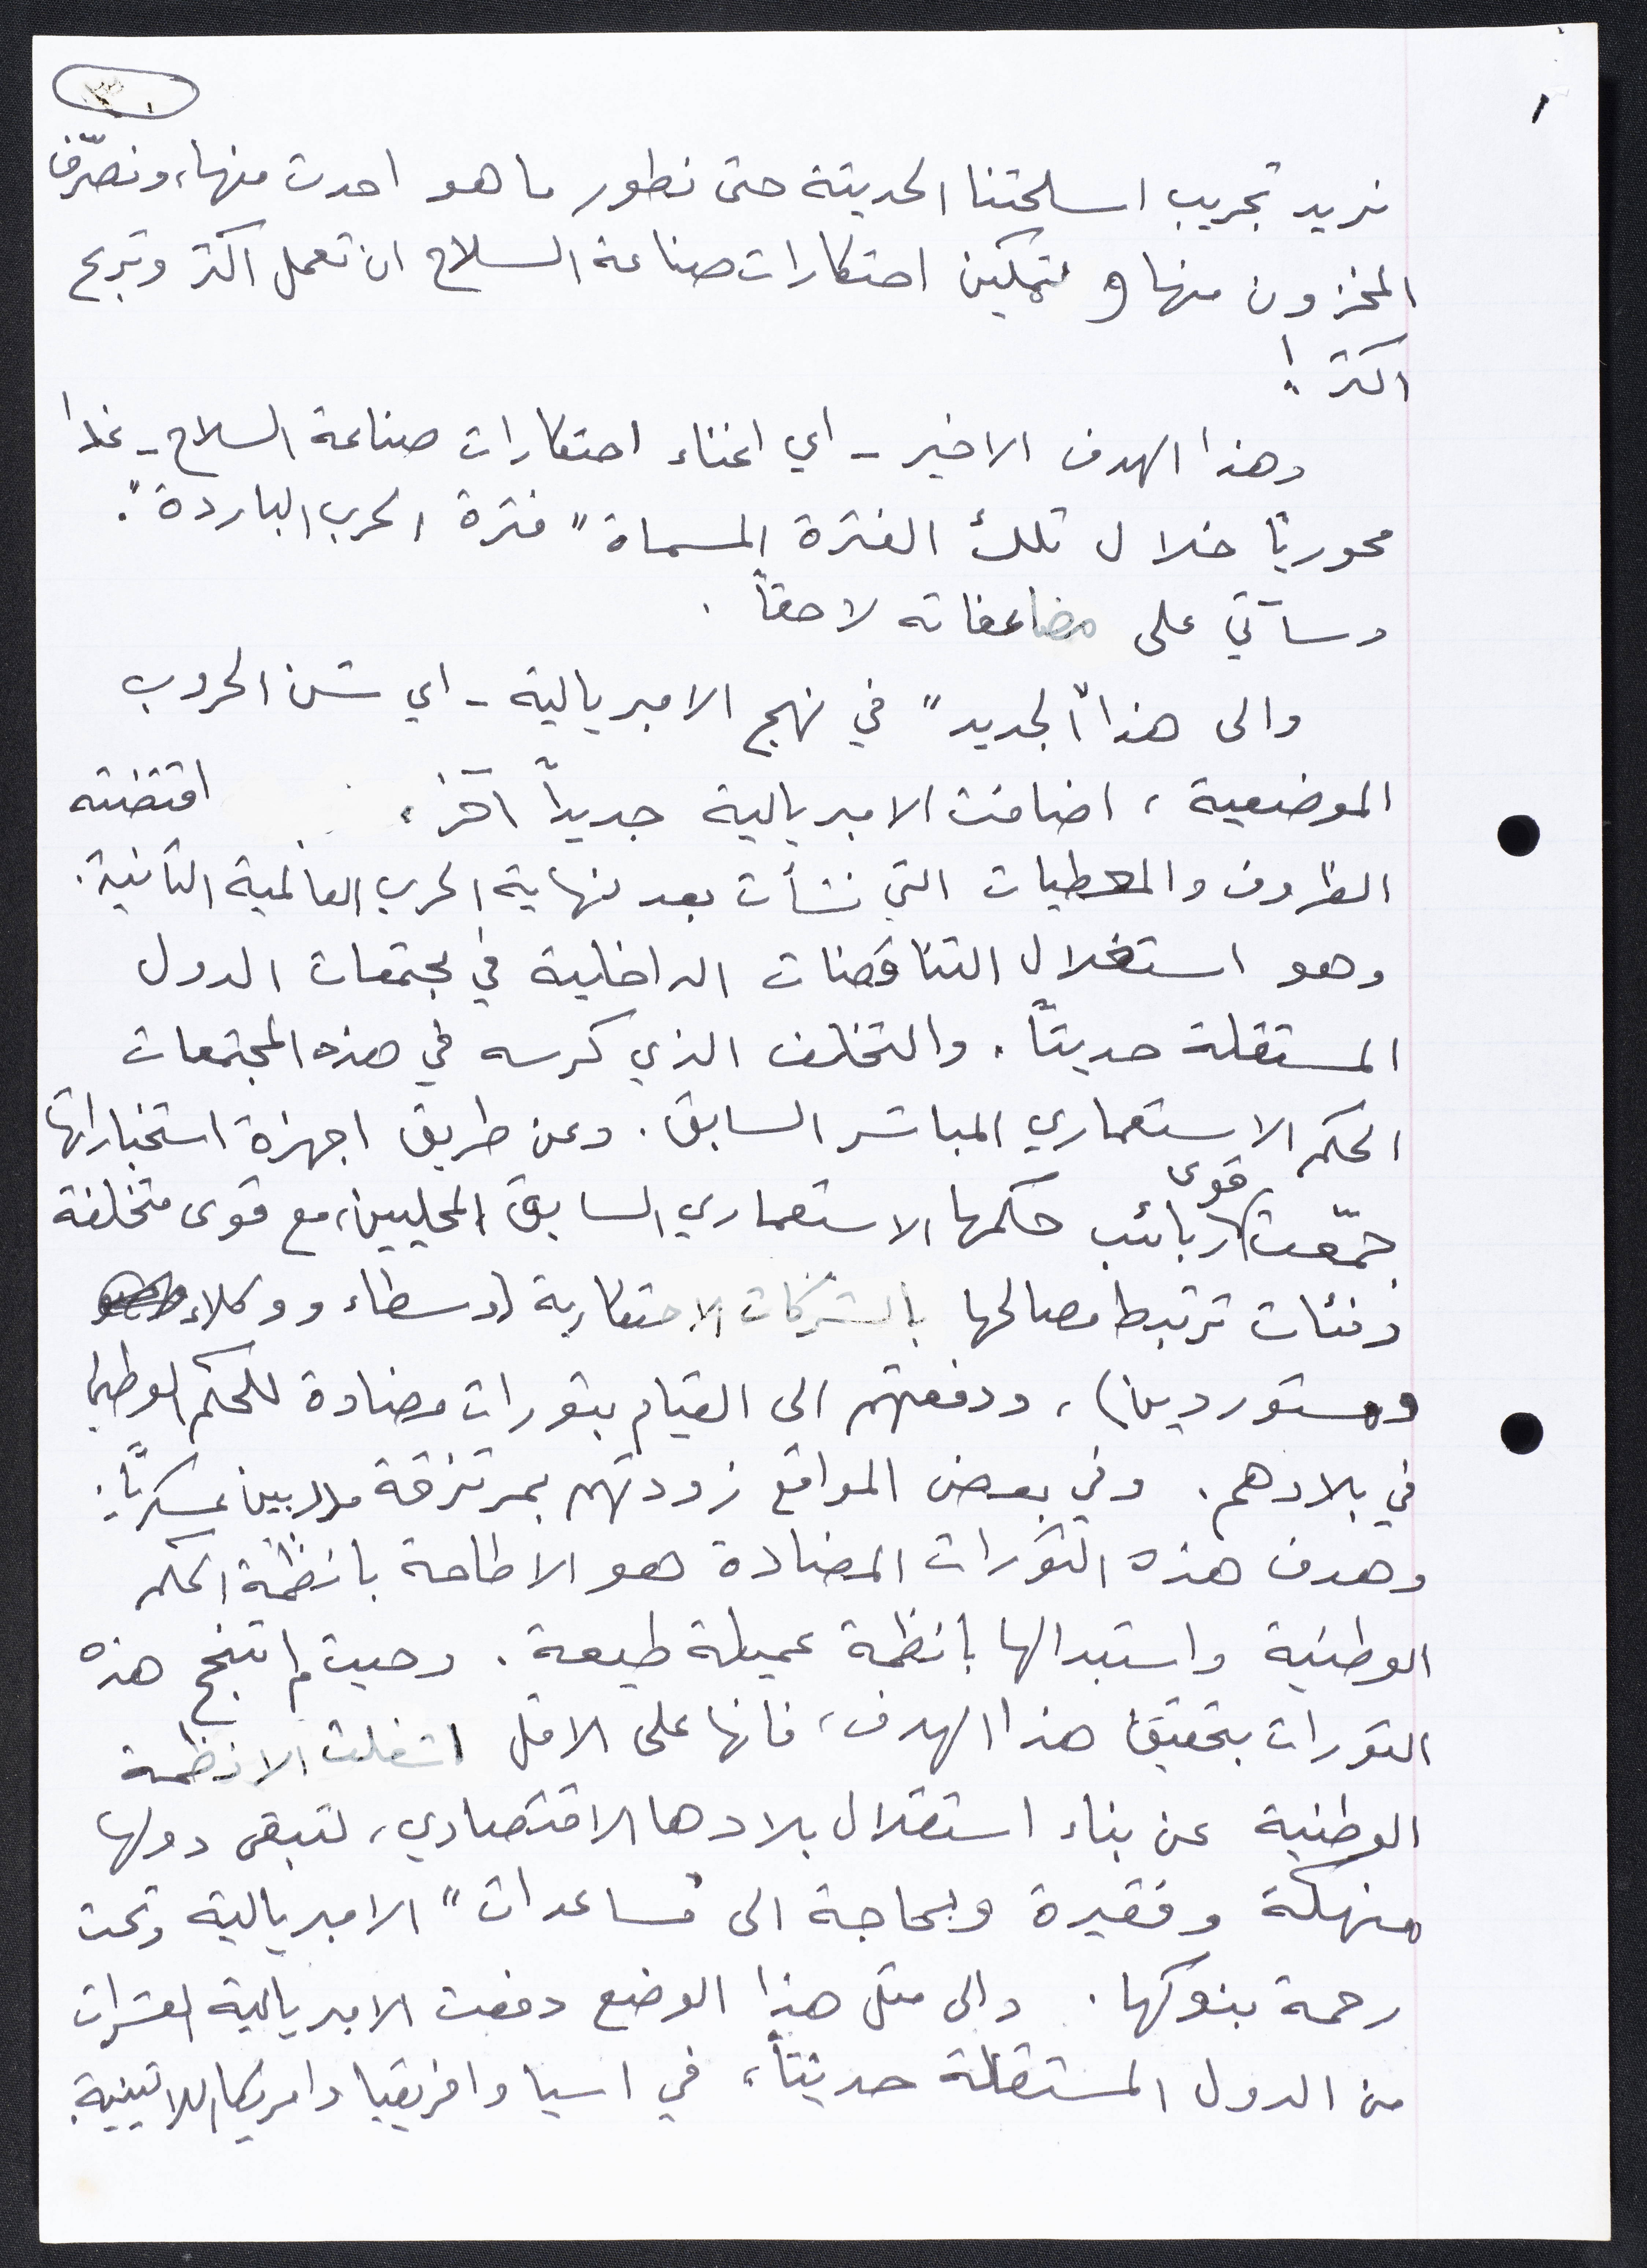 ١
نريد تجريب اسلحتنا الحديثة حتى نطور ما هو احدث منها، ونصرّف
المخزون منها و لتمكين احتكارات صناعة السلاح ان تعمل اكثر وتربح
اكثر!
وهذا الهدف الاخير - اي اغناء احتكارات صناعة السلاح - غدا
محوريّاً خلال تلك الفترة المسماة "فترة الحرب الباردة".
وسآتي على مضاعفاته لاحقاً.
والى هذا "الجديد" في نهج الامبريالية - اي شن الحروب
الموضعية، اضافت الامبريالية جديداً آخر، اقتضته
الظروف والمعطيات التي نشأت بعد نهاية الحرب العالمية الثانية.
وهو استغلال التناقضات الداخلية في مجتمعات الدول
المستقلة حديثاً. والتخلف الذي كرسه في هذه المجتمعات
الحكم الاستعماري المباشر السابق. وعن طريق اجهزة استخباراتها
جمّعت قوى ربائب حكمها الاستعماري السابق المحليين، مع قوى متخلفة
وفئات ترتبط مصالحها بالشركات الاحتكارية (وسطاء ووكلاء
ومستوردين)، ودفعتهم الى القيام بثورات مضادة للحكم الوطني
في بلادهم. وفي بعض المواقع زودتهم بمرتزقة مدربين عسكريّاً.
وهدف هذه الثورات المضادة هو الاطاحة بانظمة الحكم
الوطنية واستبدالها بانظمة عميلة طيعة. وحيث لم تنجح هذه
الثورات بتحقيق هذا الهدف، فانها على الاقل اشغلت الانظمة
الوطنية عن بناء استقلال بلادها الاقتصادي، لتبقى دولها
منهكة وفقيرة وبحاجة الى "مساعدات" الامبريالية وتحت
رحمة بنوكها. والى مثل هذا الوضع دفعت الامبريالية العشرات
من الدول المستقلة حديثاً، في اسيا وافريقيا وامريكا اللاتينية.